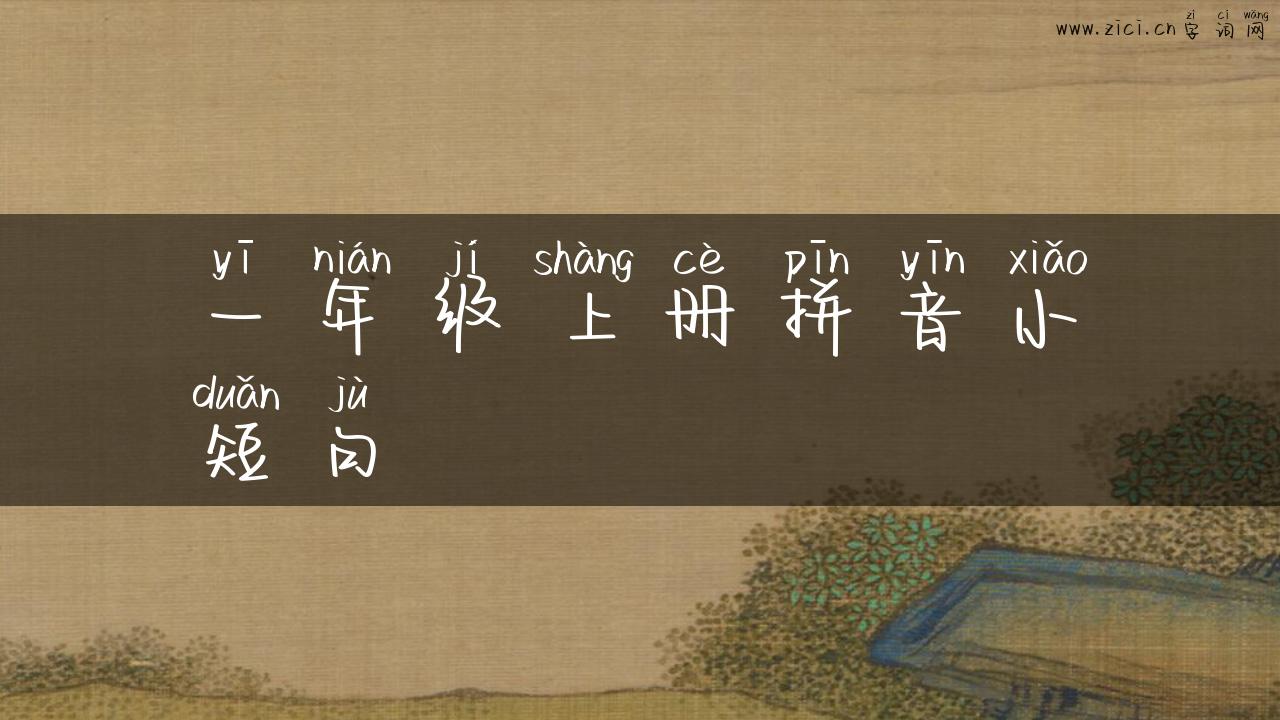 zì cí wǎng
www.zici.cn 字 词 网
yī nián jí shàng cè pīn yīn xiǎo
一 年 级 上 册 拼 音 小
duǎn jù
短 句